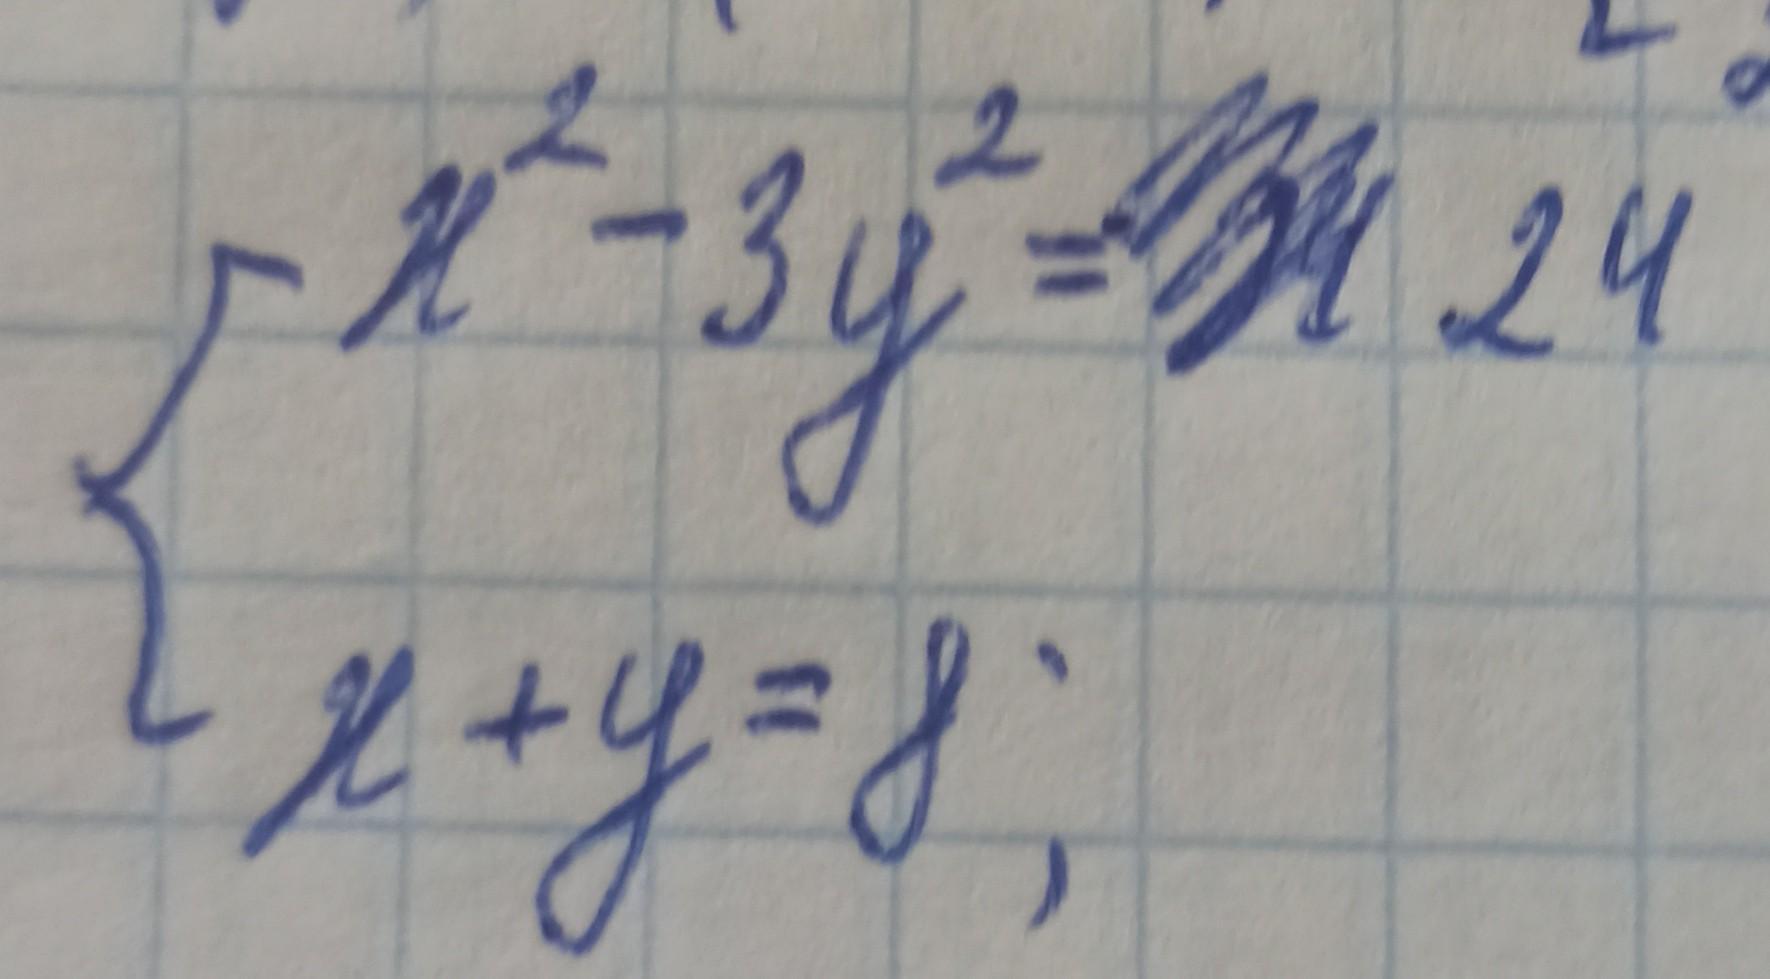 x² - 3y² = 24
x + y = 8;